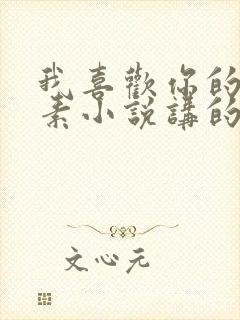 我喜歡你的
素小說講的
文心元